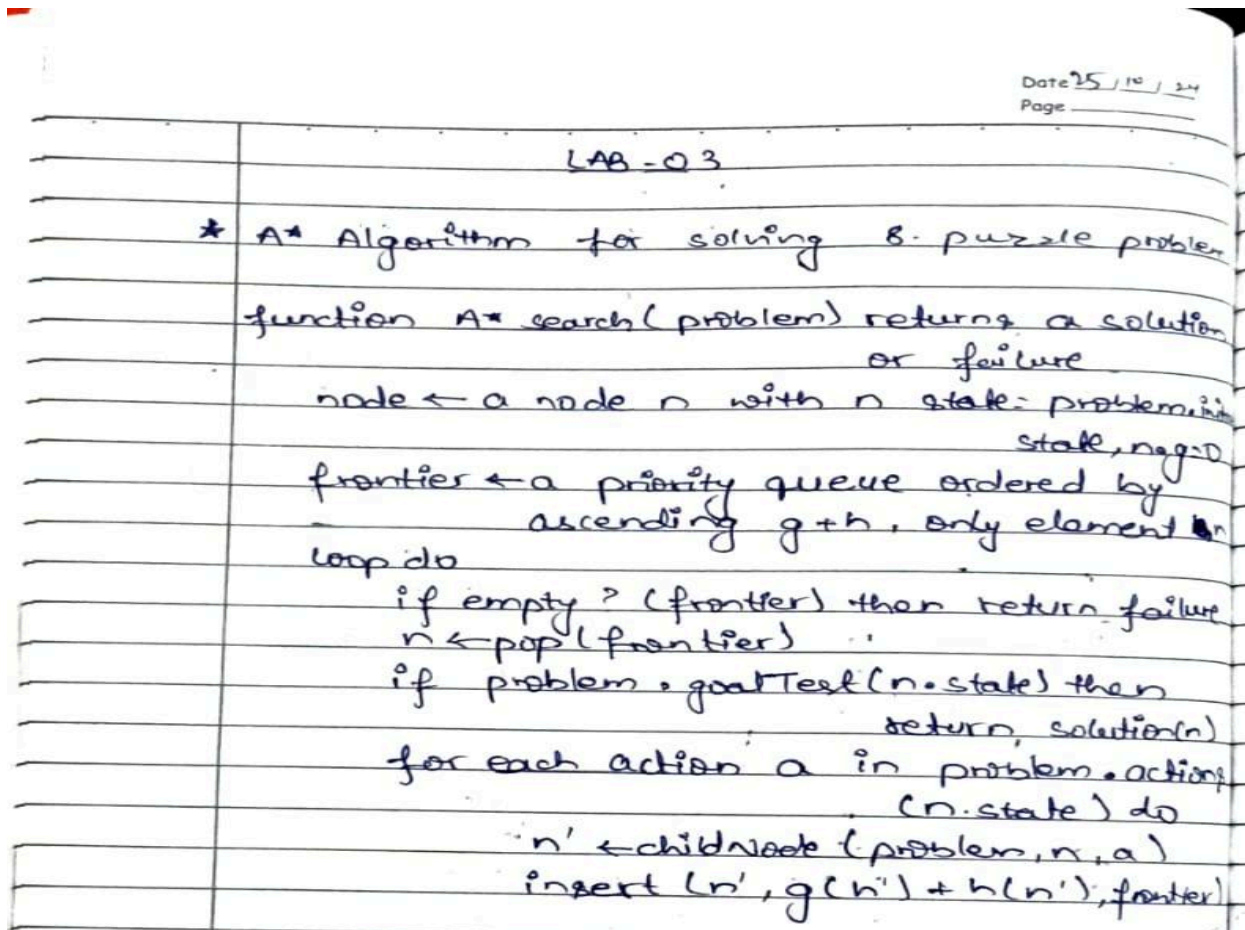 Date 25/10/24
Page
LAB-03
* A* Algorithm for solving 8-puzzle problem
function A* search(problem) returns a solution
or failure
node ← a node n with n state = problem.
state, n.g=0
frontier ← a priority queue ordered by
ascending g+h, only element n
loop do
if empty? (frontier) then return failure
n ← pop(frontier)
if problem.goalTest(n.state) then
return, solution(n)
for each action a in problem.actions
(n.state) do
n' ← childNode (problem, n, a)
insert (n', g(n') + h(n'), frontier)